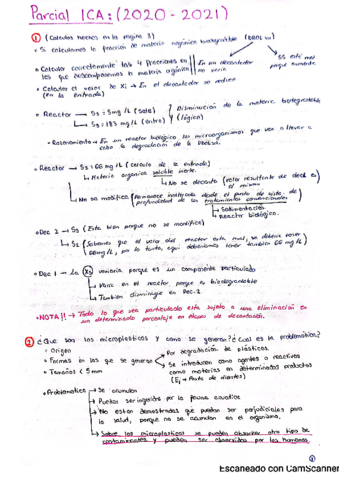 Parcial ICA: (2020-2021)
① (Calculos hechos en la pagina 3)
• S calculamos la fracción de materia orgánica biodegradable (DBOL)
En un decantador no varía
Ss está mal porque aumenta
• Calcular correctamente las 4 fracciones en las que descomponemos la materia orgánica
• Calcular el valor de Xi → En el decantador se reduce
(en la entrada)
• Reactor → Ss = 5mg/L (sale)
→ Ss = 183 mg/L (entra)
Disminución de la materia biodegradable
(lógico)
• Razonamiento → En un reactor biológico los microorganismos que van a llevar a cabo la degradación de la
• Reactor → SI = 66 mg/L (calculo de la entrada)
→ Materia organica soluble inerte.
→ No se decanta (valor resultante de decI es el mismo
→ No se modifica (Permanece inalterada desde el punto de vista de
tratamientos convencionales
→ Sedimentación
→ Reactor biológico.
• Dec 2 → S2 (Esta bien porque no se modifica)
→ SI (Sabemos que el valor del reactor esta mal, se deberia tener 66mg/L, por lo tanto, aqui deberiamos tener tambien 66 mg/L)
• Dec 1 → La Xs variaria porque es un componente particulado
→ Varía en el reactor porque es biodegradable
→ Tambien disminuye en Dec. 2
• NOTA!! → Todo lo que sea particulado esta sujeto a una eliminación en un determinado porcentaje en etapas de decantacion.
② ¿Que son los microplasticos y como se generan? ¿Cual es la problemática?
• Origen
• Formas en las que se generan
→ Por degradación de plásticos.
→ Se introducen como agentes o reactivos como materias en determinados productos
(Ej → Pasta de dientes)
• Tamaño < 5mm
• Problematica → Se acumulan
→ Puedan ser ingeridos por la fauna acuática
→ No estan demostradas que puedan ser perjudiciales para la salud, porque no se acumulan en el organismo.
→ Sobre los microplasticos se pueden absorber otro tipo de contaminantes y pueden ser absorbidos por los humanos
①
Escaneado con CamScanner